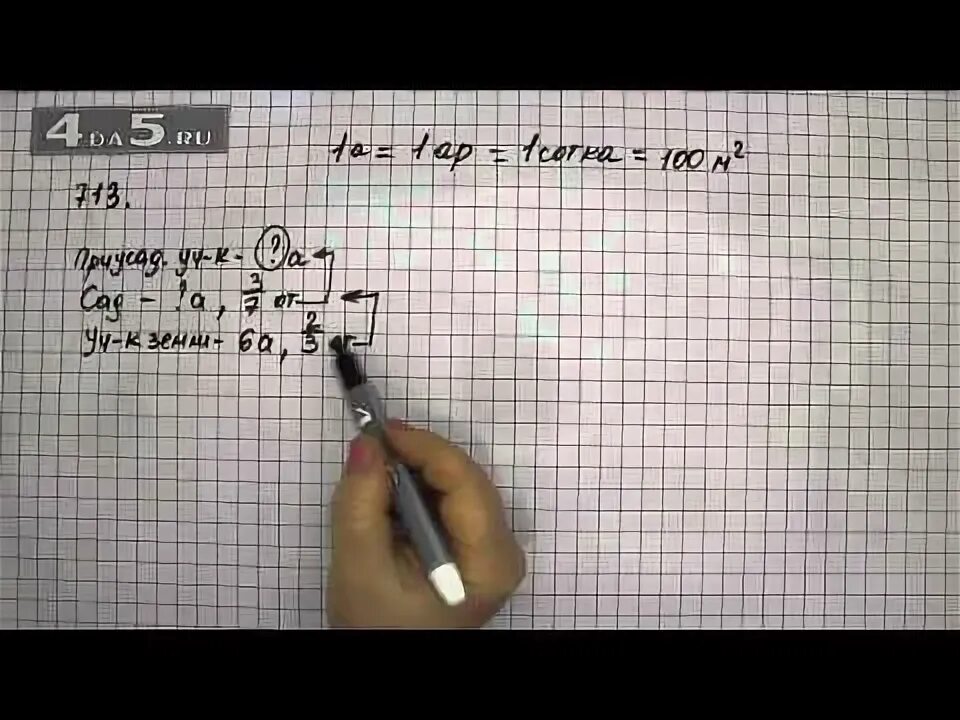 4DA5.RU
1а = 1ар = 1сотка = 100 м²
713.
Приусад. уч-к - ? а
Сад - ? а, 3/7 от
Уч-к земли - 6а, 2/3 от